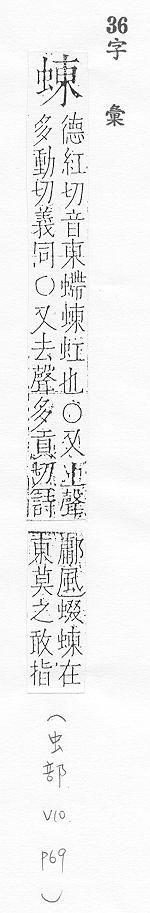 36字彙
蝀
德紅切音東螮蝀虹也○又上聲
多動切義同○又去聲多貢切詩
鄘風蝃蝀在
東莫之敢指
(虫部 V10. P69)